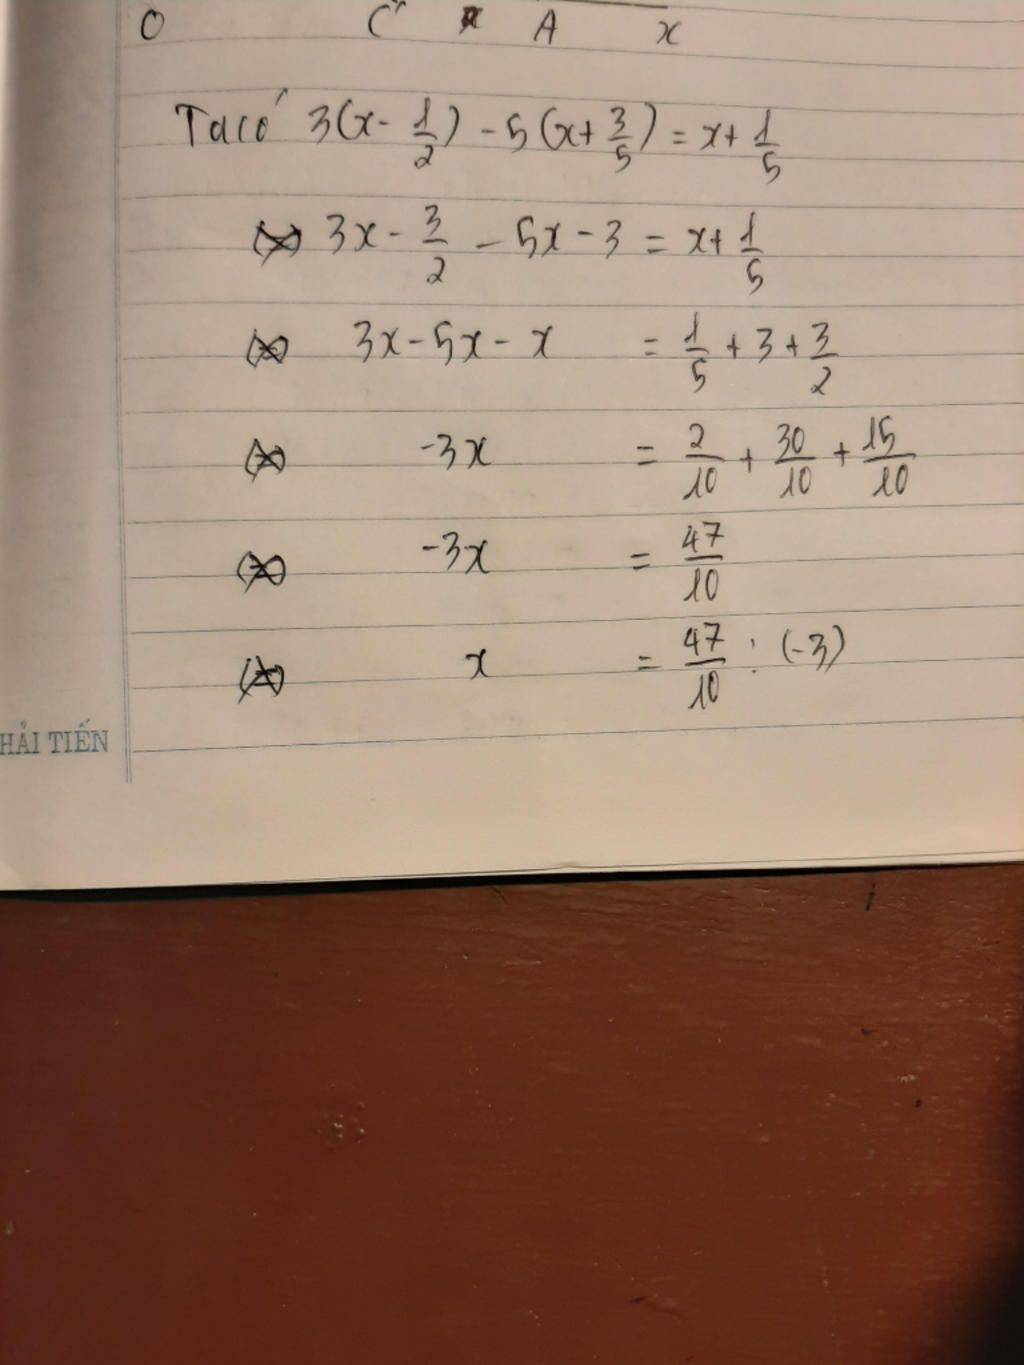 O C A x
Ta có 3(x - 1/2) - 5(x + 3/5) = x + 1/5
3x - 3/2 - 5x - 3 = x + 1/5
3x - 5x - x = 1/5 + 3 + 3/2
-3x = 2/10 + 30/10 + 15/10
-3x = 47/10
x = 47/10 : (-3)
HẢI TIẾN